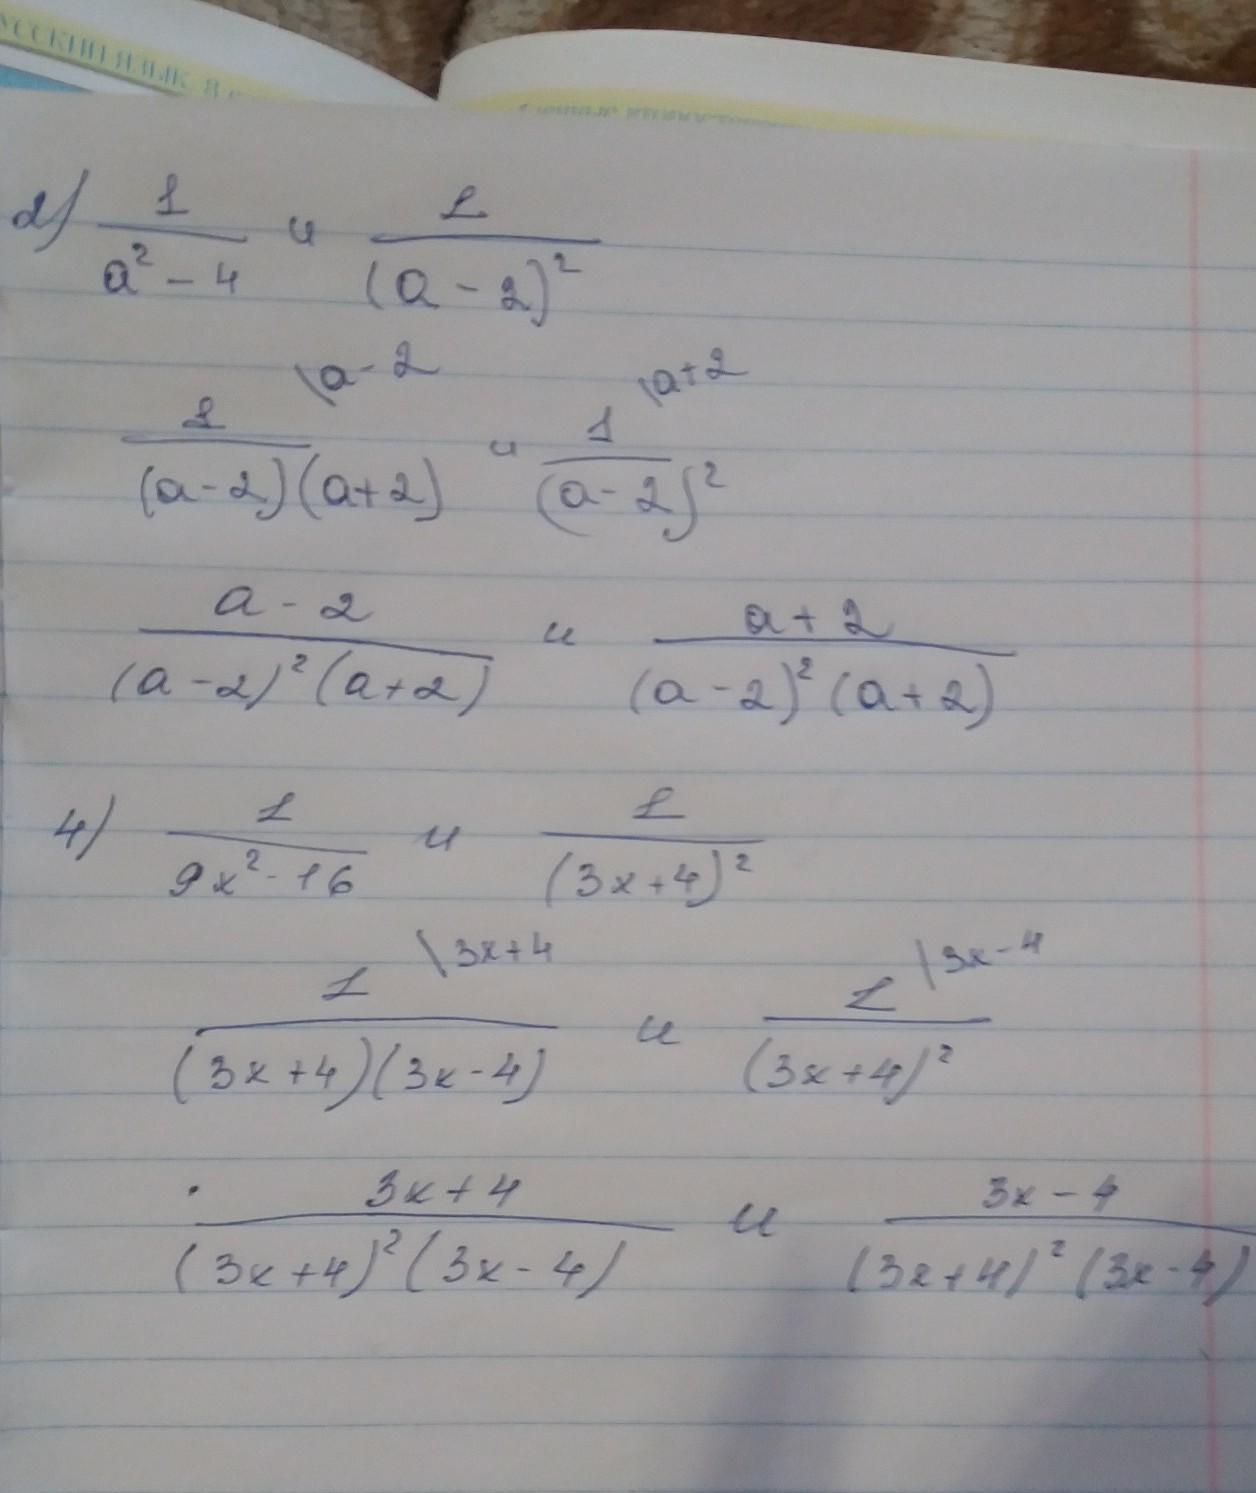 УССКИЙ ЯЗЫК 8
2) 1/(a² - 4) и 1/(a - 2)²
1/((a - 2)(a + 2)) \a - 2 и 1/(a - 2)² \a + 2
(a - 2)/((a - 2)²(a + 2)) и (a + 2)/((a - 2)²(a + 2))
4) 1/(9x² - 16) и 1/(3x + 4)²
1/((3x + 4)(3x - 4)) \3x + 4 и 1/(3x + 4)² \3x - 4
(3x + 4)/((3x + 4)²(3x - 4)) и (3x - 4)/((3x + 4)²(3x - 4))